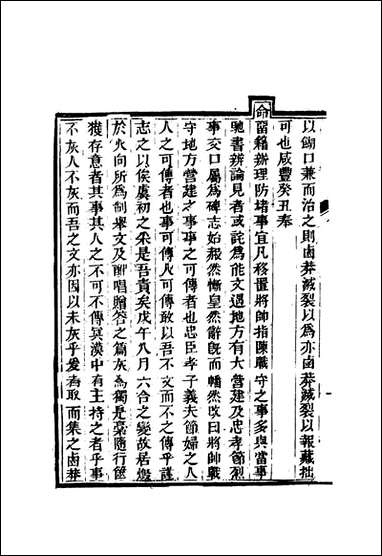 以餬口兼而治之則鹵莽滅裂以爲亦鹵莽滅裂以報藏拙
可也咸豐癸丑奉
命留籍辦理防堵事宜凡移置將帥指陳戰守之事多與當事
馳書辨論見者或詫爲能文遇地方有大營建及忠孝節烈
事交口屬爲碑志始赧然慚皇然辭旣而幡然改曰將帥戰
守地方營建之事事之可傳者也忠臣孝子義夫節婦之人
人之可傳者也事可傳人可傳敢以吾不文而不之傳乎謹
志之以俟虞初之采是吾責矣戊午八月六合之變故居燬
於火向所爲制舉文及酬唱贈答之篇灰焉獨是藁隨行篋
獲存意者其事其人之不可不傳冥漠中有主持之者乎事
不灰人不灰而吾之文亦因以未灰乎爰爲取而集之鹵莽